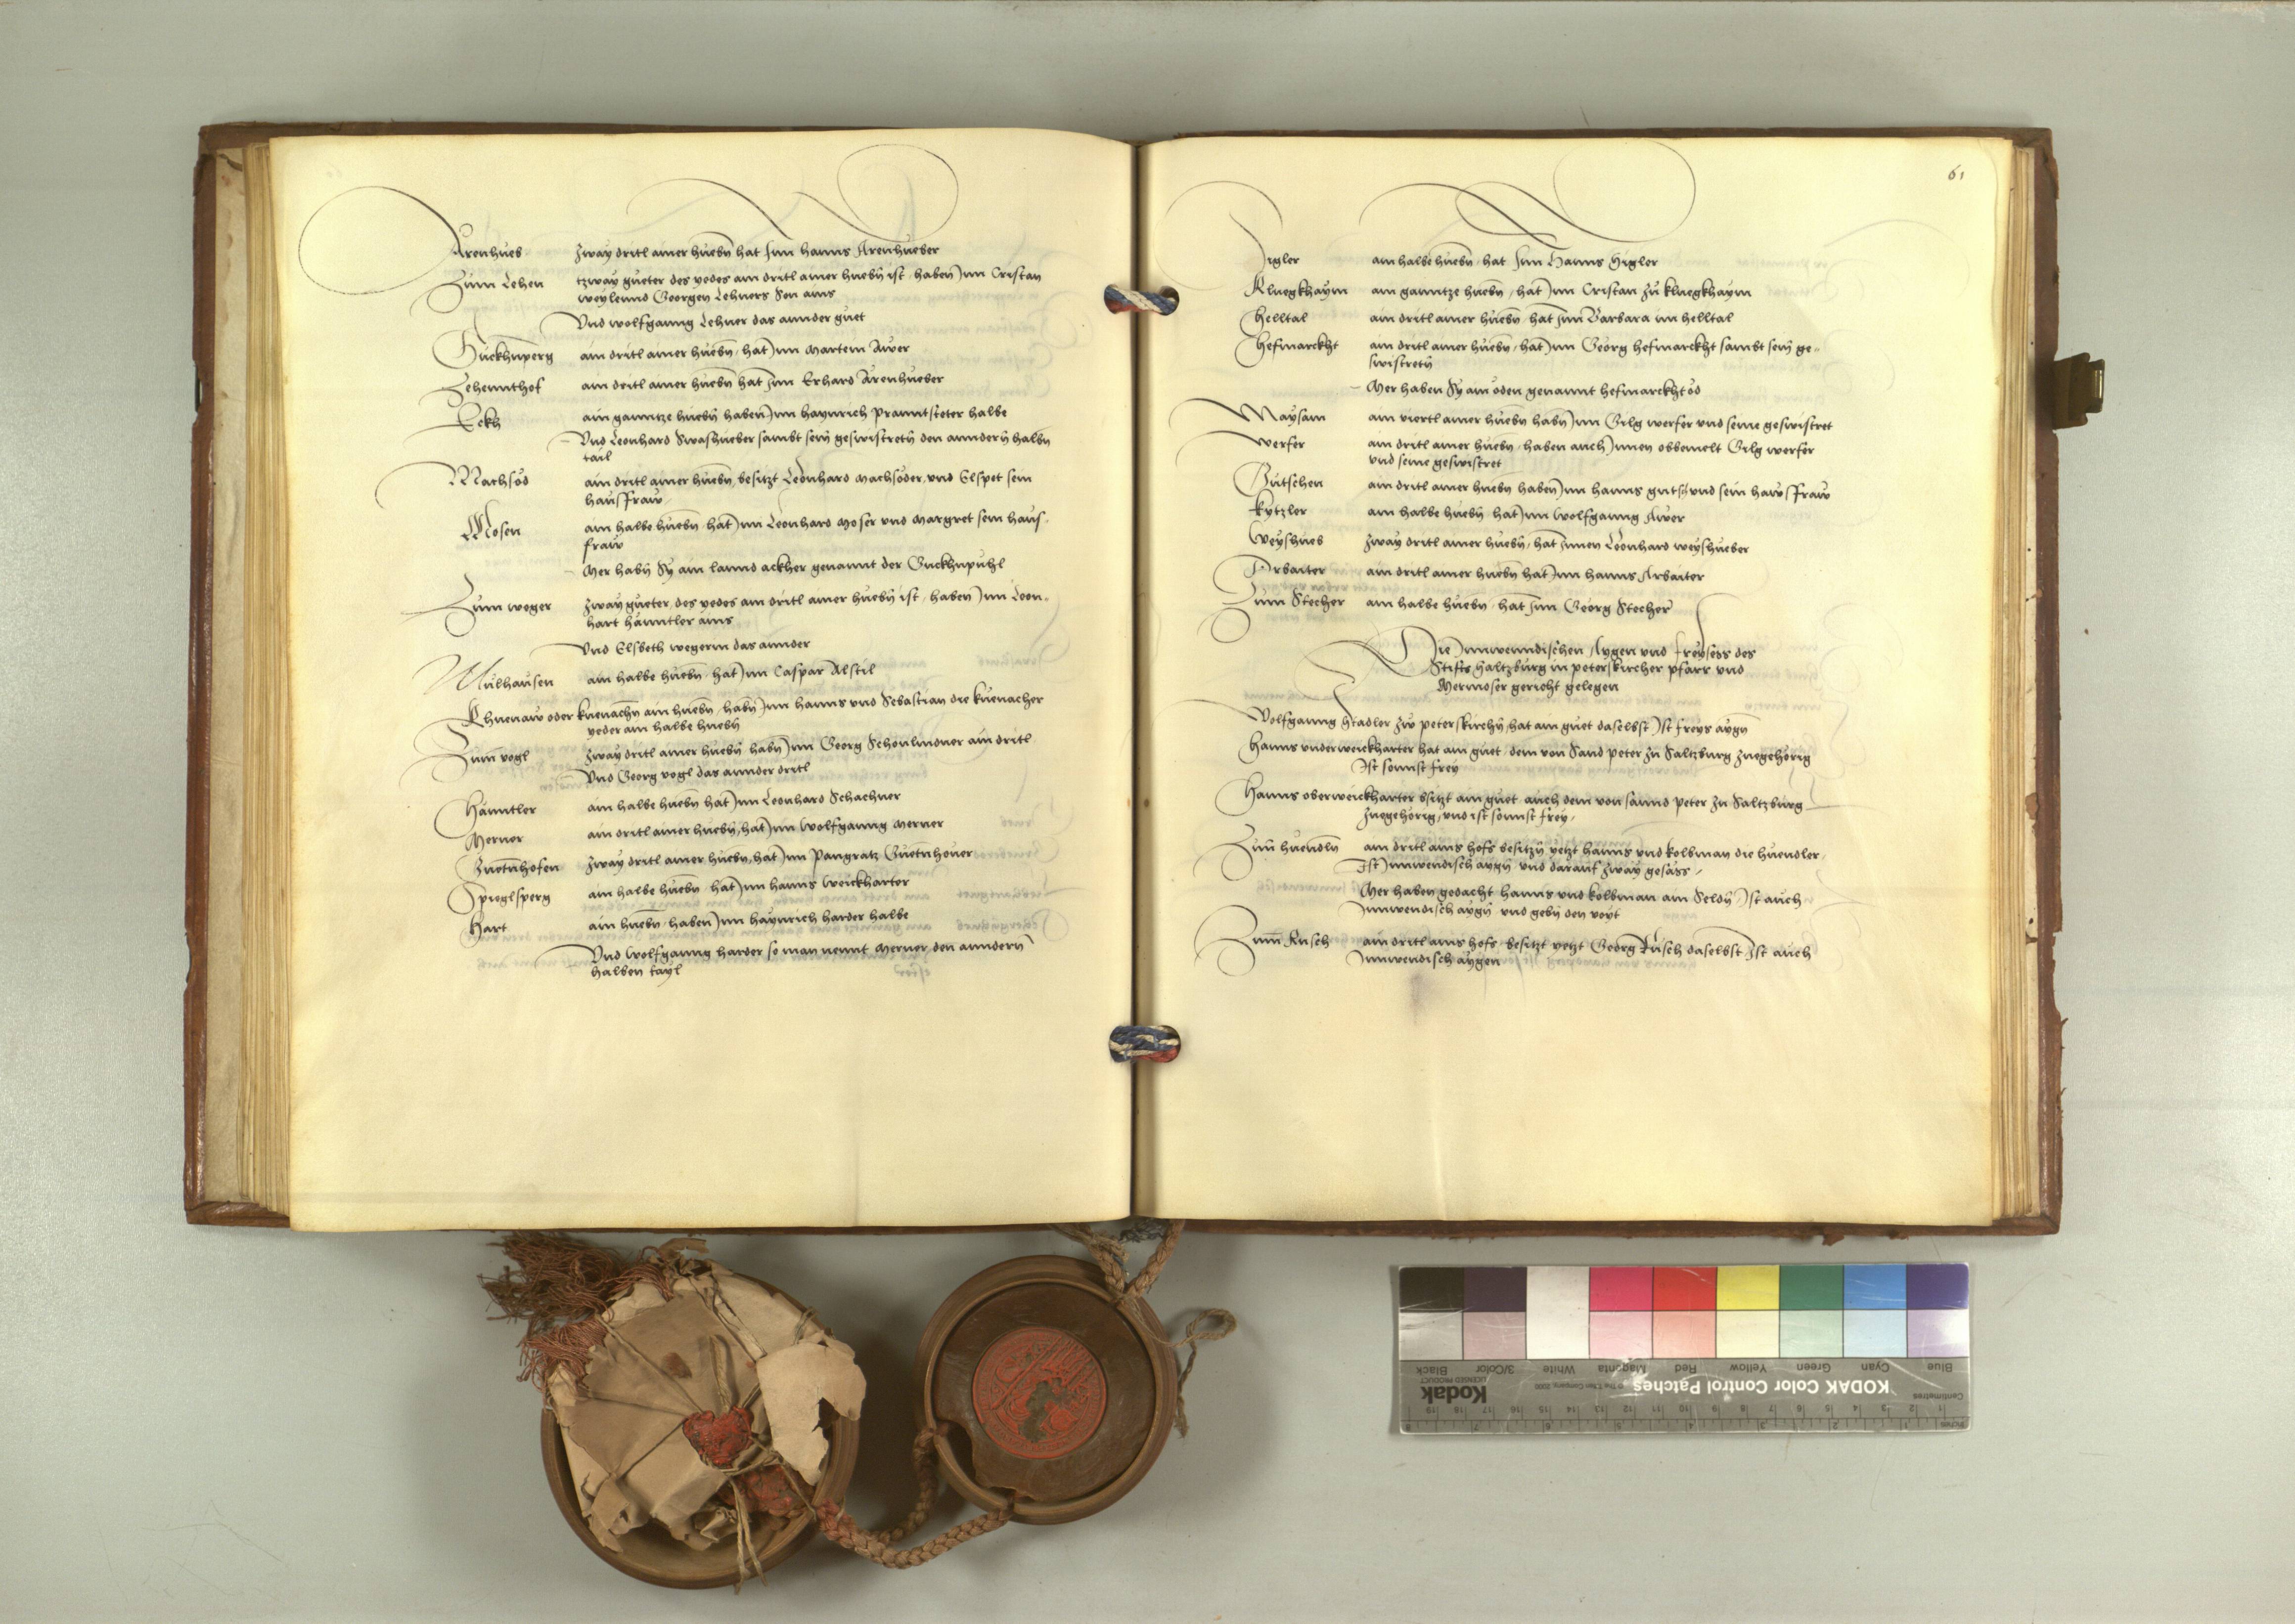 Arenhueb zway dritl ainer huebn hat Inn hanns Arenhueber
Zum Lehen tzway gueter des yedes ain dritl ainer huebn ist haben Inn Cristan
weylennd Georgen Lehners Son ains
Vnd wolfganng Lehner das annder guet
Guckhnperg ain dritl ainer huebn hat Inn Martein Awer
Zehenthof ain dritl ainer huebn hat Inn Erhard Arenhueber
Eckh ain ganntze huebn haben Inn haynrich pranntsteter halbe
Vnd Leonhard Swashueber sambt sein geswistretn den anndern halbn
tail
Machsöd ain dritl ainer huebn besitzt Leonhard Machsöder vnd Elspet sein
hausfraw
Mosen ain halbe huebn hat Inn Leonhard Moser vnd Margret sein haus-
fraw
Mer habn Sy ain lannd ackher genannt der Guckhnpuhl
Zum weger zway gueter des yedes ain dritl ainer huebn ist haben Inn Leon-
hart häuntler ains
Vnd Elsbeth wegerin das annder
Mülhausen ain halbe huebn hat Inn Caspar Alstil
Khuenaw oder kuenachn ain huebn habn Inn hanns vnd Sebastian die kuenacher
yeder ain halbe huebn
Zum vogl zway dritl ainer huebn habn Inn Georg Schonlindner ain dritl
Vnd Georg vogl das annder dritl
Häuntler ain halbe huebn hat Inn Leonhard Schachner
Merner ain dritl ainer huebn hat Inn Wolfganng Merner
Zuetnhofen zway dritl ainer huebn hat Inn Pangratz Guetnhover
Spieglsperg ain halbe huebn hat Inn hanns Weickharter
Hart ain huebn haben Inn haynrich harder halbe
Vnd Wolfganng harder so man nennt Merner den anndern
halben tayl
61
Zigler ain halbe huebn hat Inn Hanns Zigler
Kluegkhaym ain ganntze huebn hat Inn Cristan zu kluegkhaym
Helltal ain dritl ainer huebn hat Inn Barbara im helltal
Hefmarckht ain dritl ainer huebn hat Inn Georg hefmarckht sambt sein ge-
swistretn
Mer haben Sy ain öden genannt hefmarckhtöd
Maysam ain viertl ainer huebn habn Inn Gilg werfer vnd seine geswistret
Werfer ain dritl ainer huebn haben auch Innen obbemelt Gilg werfer
vnd seine geswistret
Gutschen ain dritl ainer huebn haben Inn hanns gutsch vnd sein hawsfraw
Kytzler ain halbe huebn hat Inn Wolfganng Awer
Weyshueb zway dritl ainer huebn hat Innen Leonhard weyshueber
Arbaiter ain dritl ainer huebn hat Inn hanns Arbaiter
Zum Stecher ain halbe huebn hat Inn Georg Stecher
Die Innwenndischen Aygen vnd freysess des
Stiffts Saltzburg in peterskircher pfarr vnd
Mermoser gericht gelegen
Wolfganng Stadler zw peterskirchn hat ain guet daselbst Ist freys aygn
Hanns vnderweickharter hat ain guet dem von Sand Peter zu Saltzburg zuegehörig
Ist sonnst frey
Hanns oberweickharter bsitzt ain guet auch dem von sannd Peter zu Saltzburg
zuegehörig vnd ist sonnst frey
Zum huendln ain dritl ains hofs besitzn yetzt hanns vnd kolbman die huendler
Ist Innwendisch aygn vnd darauf zway gesäss
Mer haben gedacht hanns vnd kolbman ain Seldn Ist auch
Innwendisch aygn vnd gebn den voyt
Zum Rusch ain dritl ains hofs besitzt yetzt Georg Rusch daselbst Ist auch
Innwendisch aygen
KODAK Color Control Patches
Kodak
LICENSED PRODUCT
Blue Cyan Green Yellow Red Magenta White 3/Color Black
Centimetres
Inches